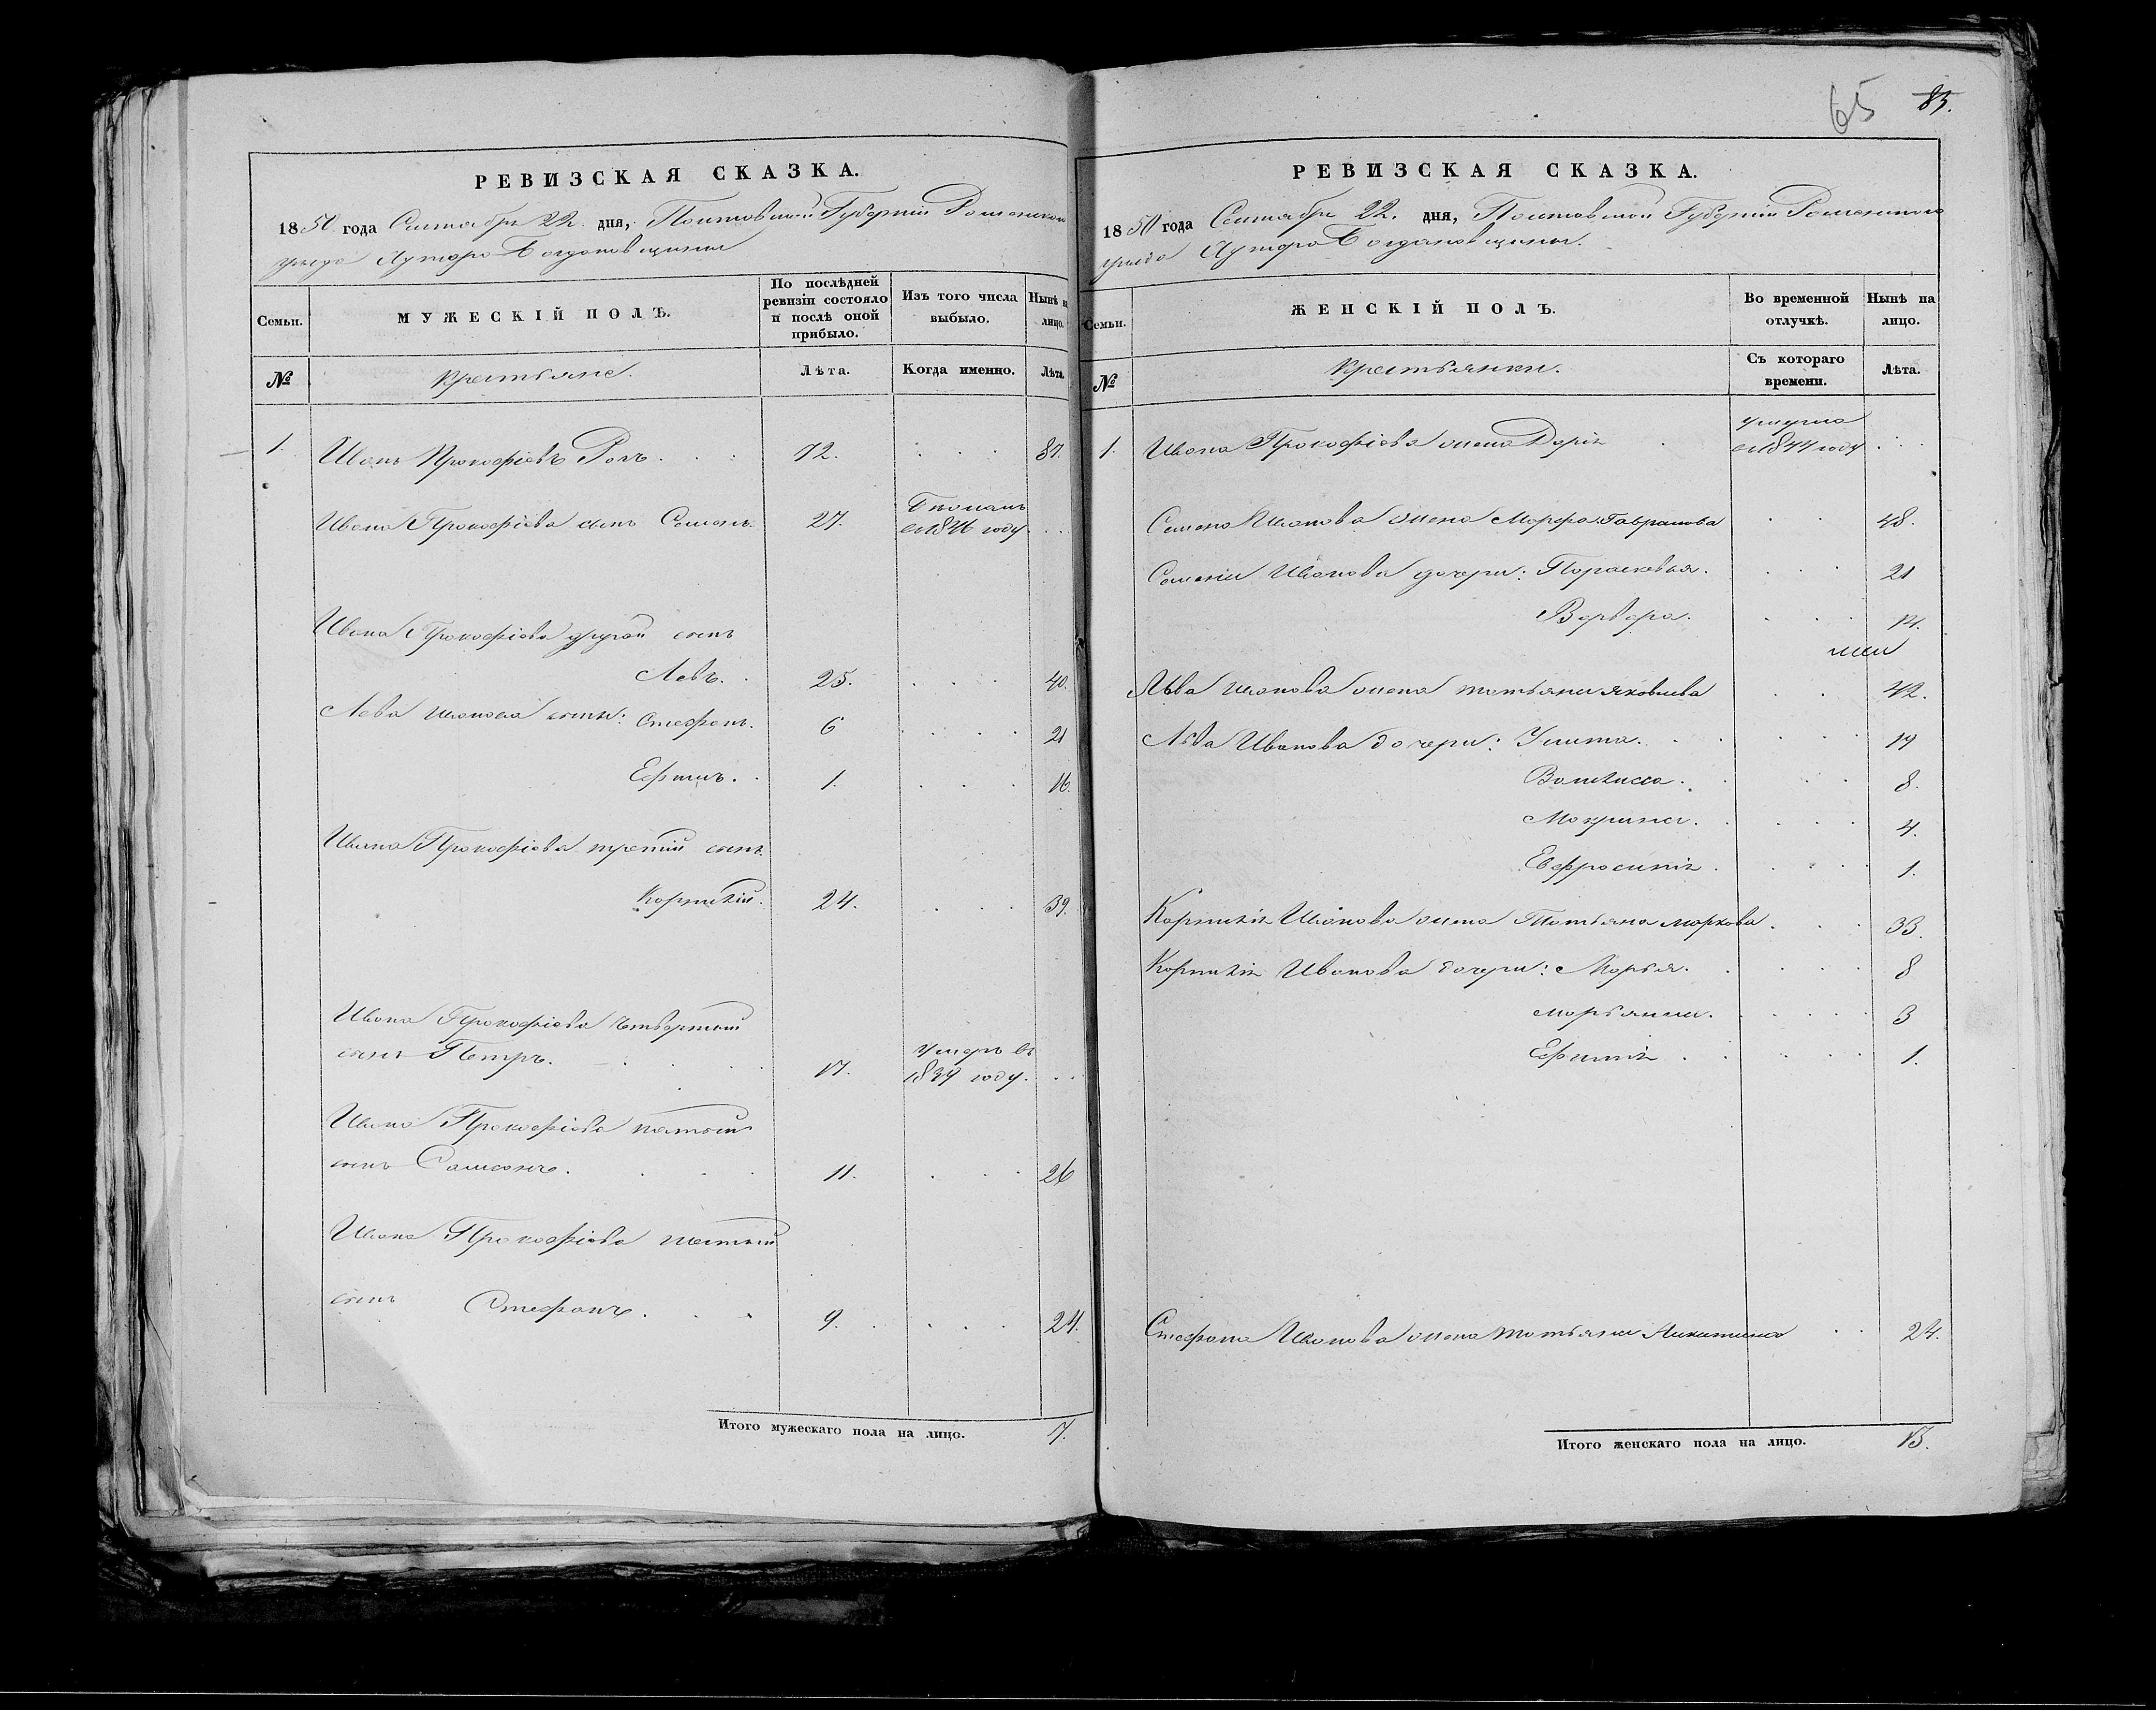 65 83.
РЕВИЗСКАЯ СКАЗКА.
1850 года Сентября 22. дня, Полтавской Губерніи Роменскаго
уезда Хутора Богдановщины
Семьи.
МУЖЕСКІЙ ПОЛЪ.
По послѣдней ревизіи состояло и послѣ оной прибыло.
Изъ того числа выбыло.
Нынѣ на лицо.
№
Крестьяне.
Лѣта.
Когда именно.
Лѣта.
1. Иванъ Прокофіевъ 72. 87.
Ивана Прокофіева сынъ Семенъ. 27. 1846 году.
Ивана Прокофіева другой сынъ
Левъ. 25. 40.
Лева Иванова сыны: Стефанъ. 6 21
Ефимъ. 1. 16.
Ивана Прокофіева третій сынъ
Корнилій. 24. 39.
Ивана Прокофіева четвертый
сынъ Петръ. 17. умеръ въ
1839 году.
Ивана Прокофіева пятый
сынъ Самсонъ. 11. 26
Ивана Прокофіева шестый
сынъ Стефанъ. 9. 24.
Итого мужескаго пола на лицо. 7.
РЕВИЗСКАЯ СКАЗКА.
1850 года Сентября 22. дня, Полтавской Губерніи Роменскаго
уезда Хутора Богдановщины.
Семьи.
ЖЕНСКІЙ ПОЛЪ.
Во временной отлучкѣ.
Нынѣ на лицо.
№
Крестьянки.
Съ котораго времени.
Лѣта.
1. Ивана Прокофіева жена Дарія умерла
1844 году
Семена Иванова жена Марфа Гаврилова 48.
Семена Иванова дочери: Параскевья. 21
Варвара. 14.
Льва Иванова жена Татьяна Яковлева 42.
Льва Иванова дочери: Улита. 19
Василиса. 8.
Макрина. 4.
Евфросинія. 1.
Корнилія Иванова жена Татьяна Маркова 33.
Корнилія Иванова дочери: Марья. 8
Марьяна. 3
Ефимія. 1.
Стефана Иванова жена Татьяна Никитина 24.
Итого женскаго пола на лицо. 13.